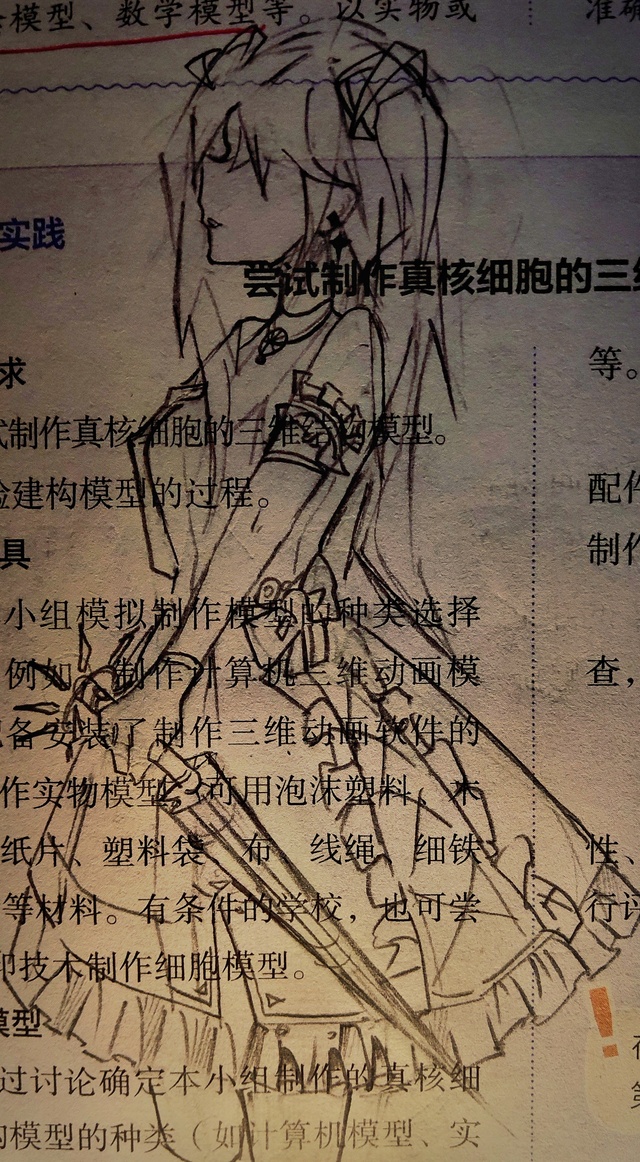 模型、数学模型等。以实物或
准确
实践
尝试制作真核细胞的三维
求
式制作真核细胞的三维结构模型。
验建构模型的过程。
具
小组模拟制作模型的种类选择
例如，制作计算机三维动画模
备安装了制作三维动画软件的
作实物模型，可用泡沫塑料、木
纸片、塑料袋、布、线绳、细铁
等材料。有条件的学校，也可尝
印技术制作细胞模型。
模型
过讨论确定本小组制作的真核细
构模型的种类（如计算机模型、实
等。
配件
制作
查，
性、
行评
在
第